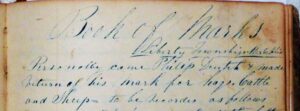 Book of Marks
Liberty Township
Personally come Philip & made
return of his mark for hogs Cattle
and Sheep to be recorded as follows